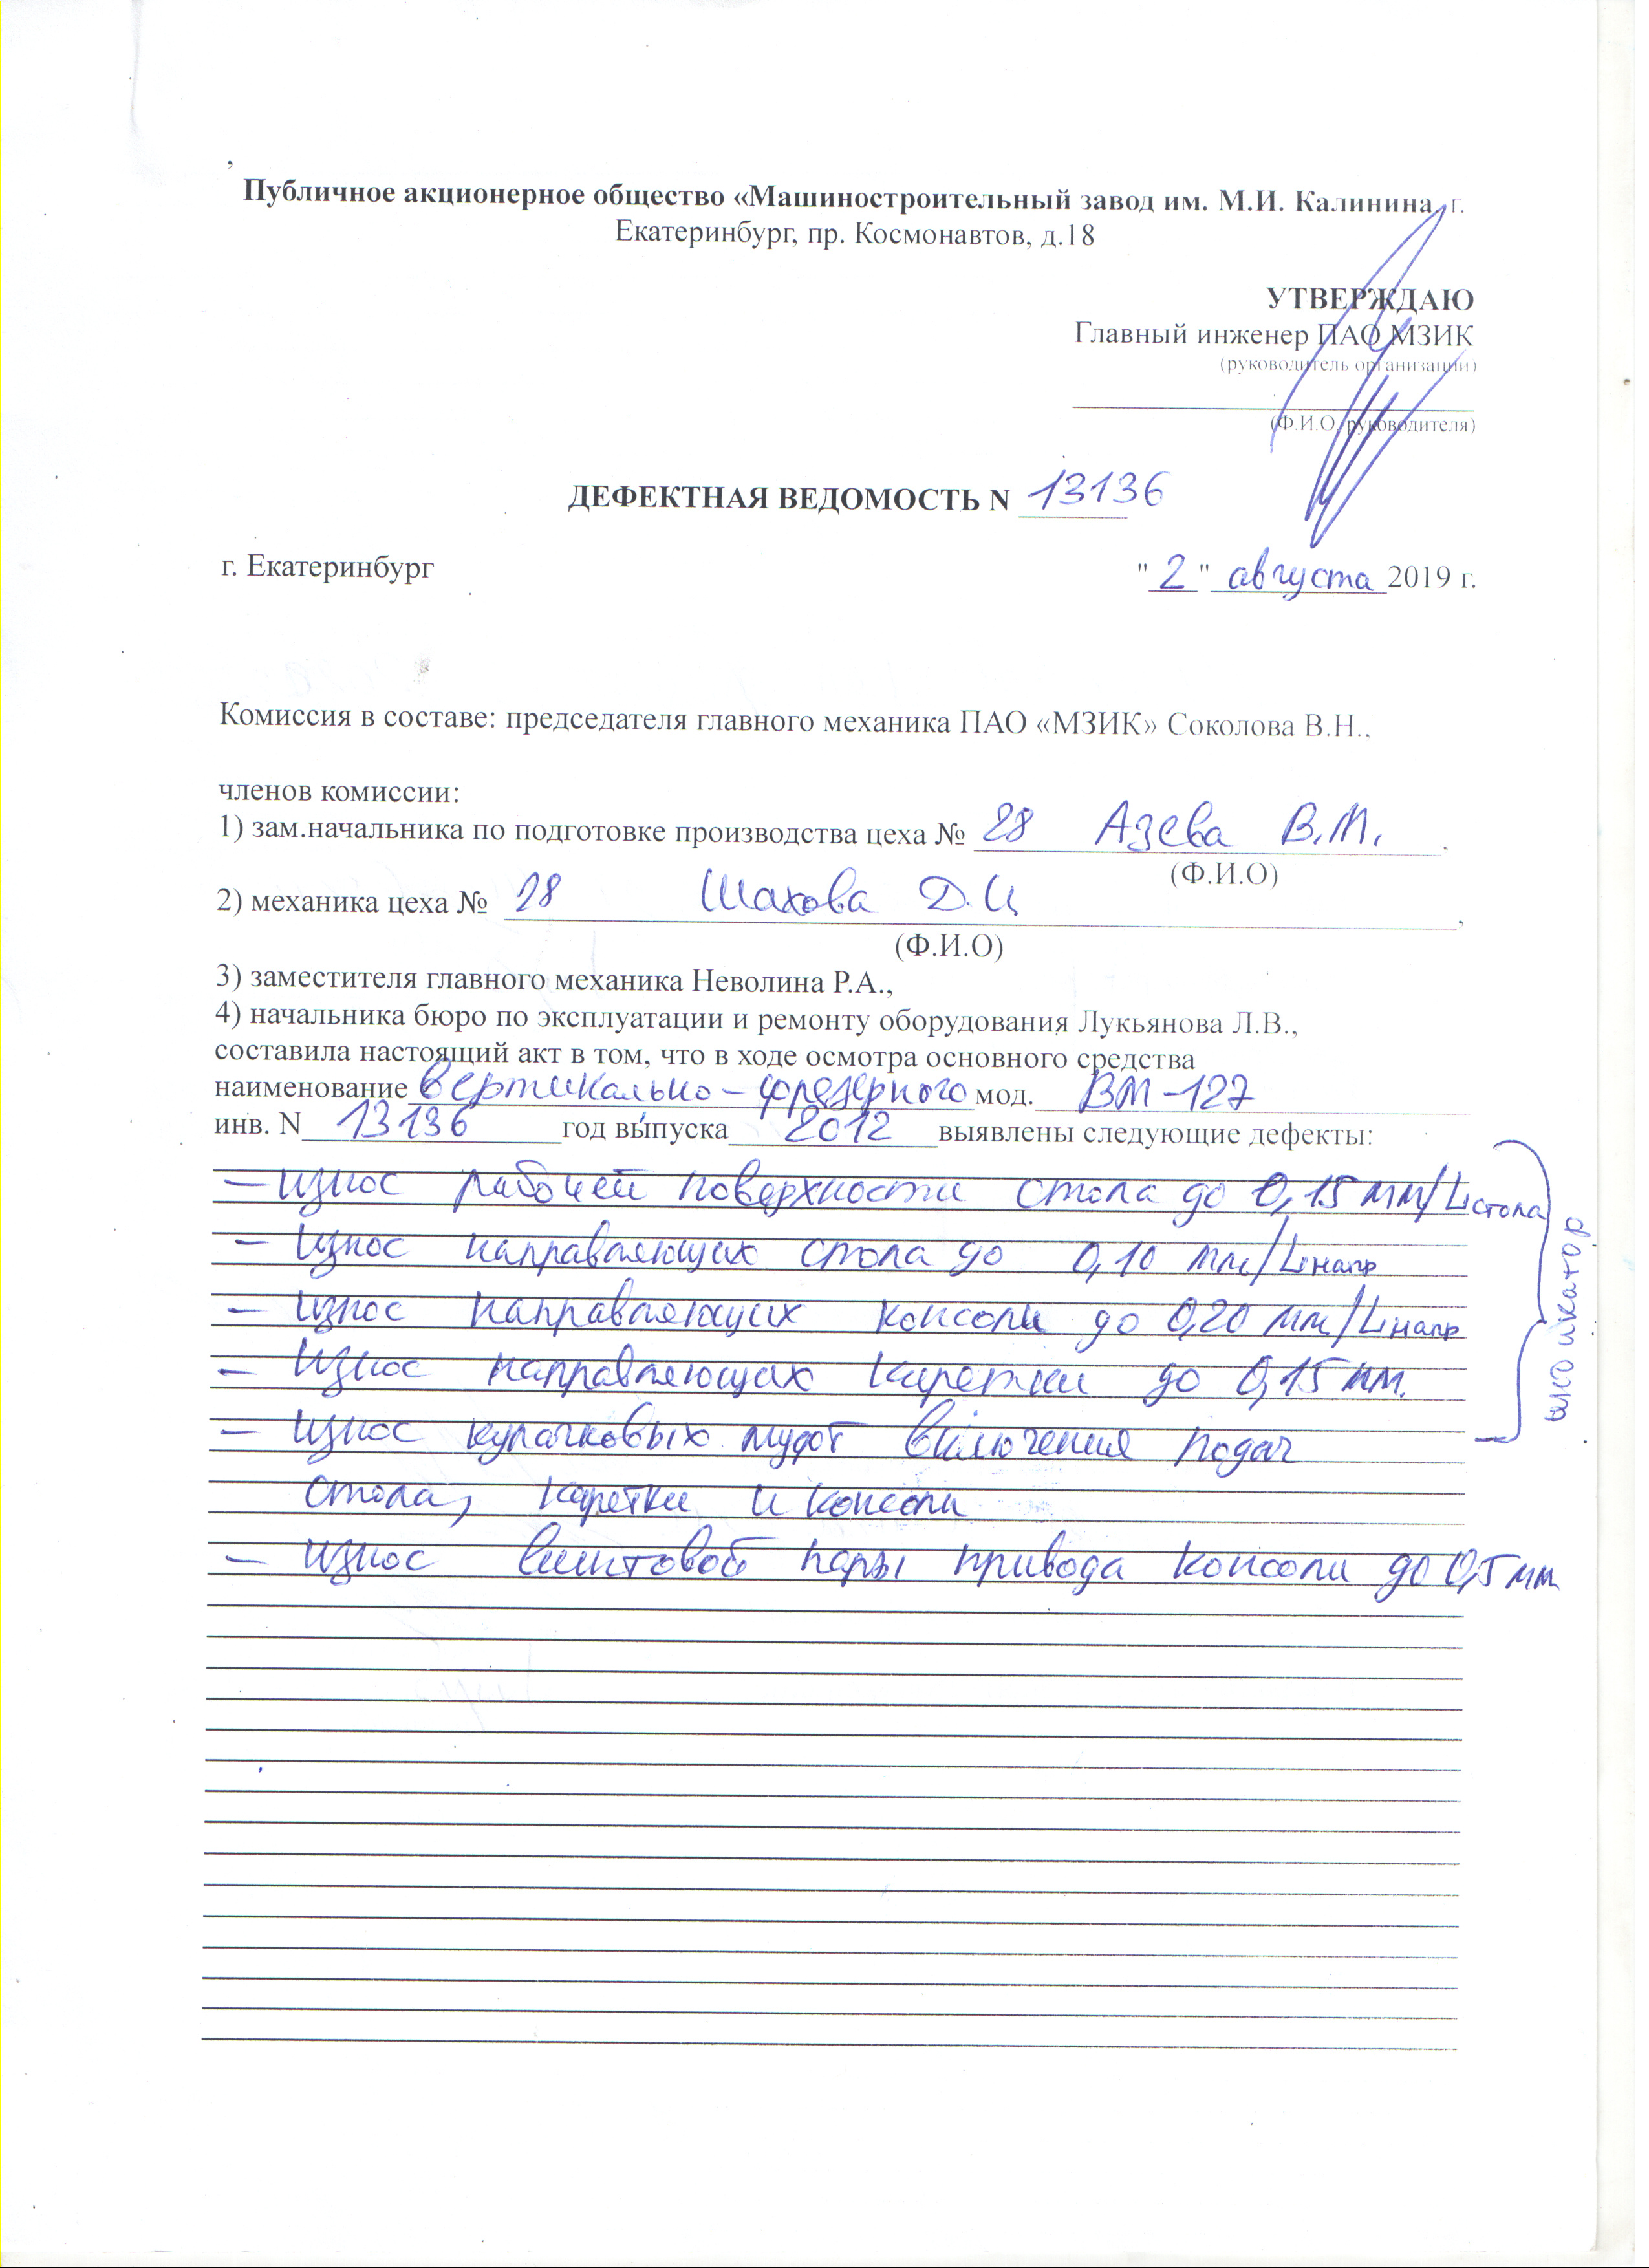 Публичное акционерное общество «Машиностроительный завод им. М.И. Калинина, г.
Екатеринбург, пр. Космонавтов, д.18
УТВЕРЖДАЮ
Главный инженер ПАО МЗИК
(руководитель организации)
(Ф.И.О. руководителя)
ДЕФЕКТНАЯ ВЕДОМОСТЬ N 13136
г. Екатеринбург "2" августа 2019 г.
Комиссия в составе: председателя главного механика ПАО «МЗИК» Соколова В.Н.,
членов комиссии:
1) зам.начальника по подготовке производства цеха № 28 Азева В.М.,
(Ф.И.О)
2) механика цеха № 28 Шахова Д.И,
(Ф.И.О)
3) заместителя главного механика Неволина Р.А.,
4) начальника бюро по эксплуатации и ремонту оборудования Лукьянова Л.В.,
составила настоящий акт в том, что в ходе осмотра основного средства
наименование вертикально-фрезерного мод. ВМ-127
инв. N 13136 год выпуска 2012 выявлены следующие дефекты:
– износ рабочей поверхности стола до 0,15 мм/L стола
– износ направляющих стола до 0,10 мм/L напр
– износ направляющих консоли до 0,20 мм/L напр
– износ направляющих каретки до 0,15 мм.
– износ кулачковых муфт включения подач
стола, каретки и консоли
– износ винтовой пары привода консоли до 0,5 мм